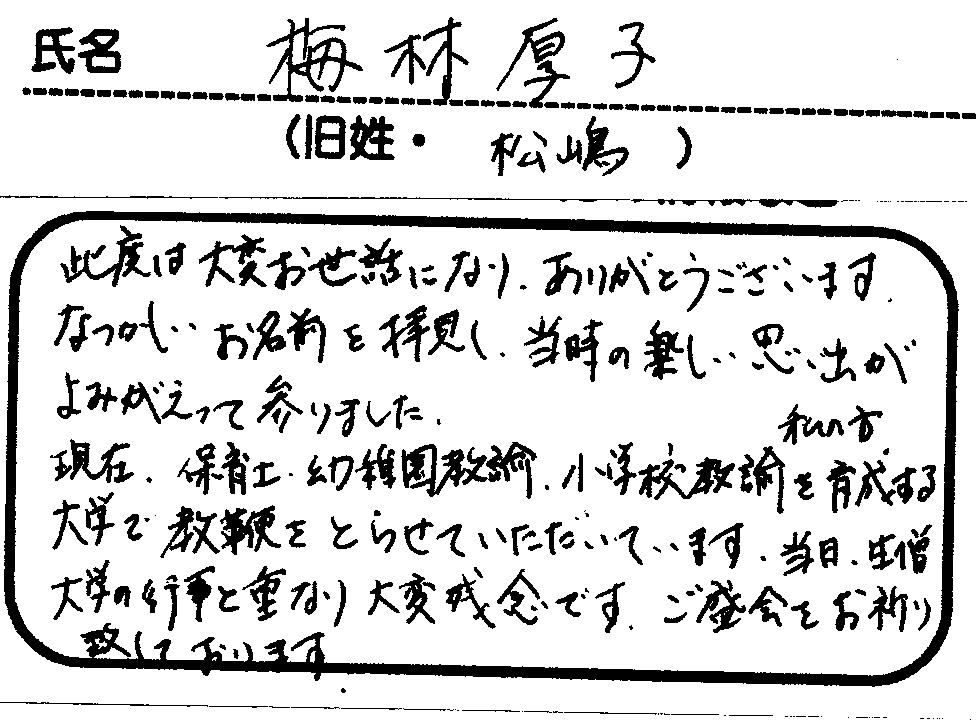 氏名 梅林厚子
(旧姓・ 松嶋 )
此度は大変お世話になり、ありがとうございます。
なつかしいお名前を拝見し、当時の楽しい思い出が
よみがえって参りました。
私の方
現在、保育士・幼稚園教諭、小学校教諭を育成する
大学で教鞭をとらせていただいています。当日、生憎
大学の行事と重なり大変残念です。ご盛会をお祈り
致しております。